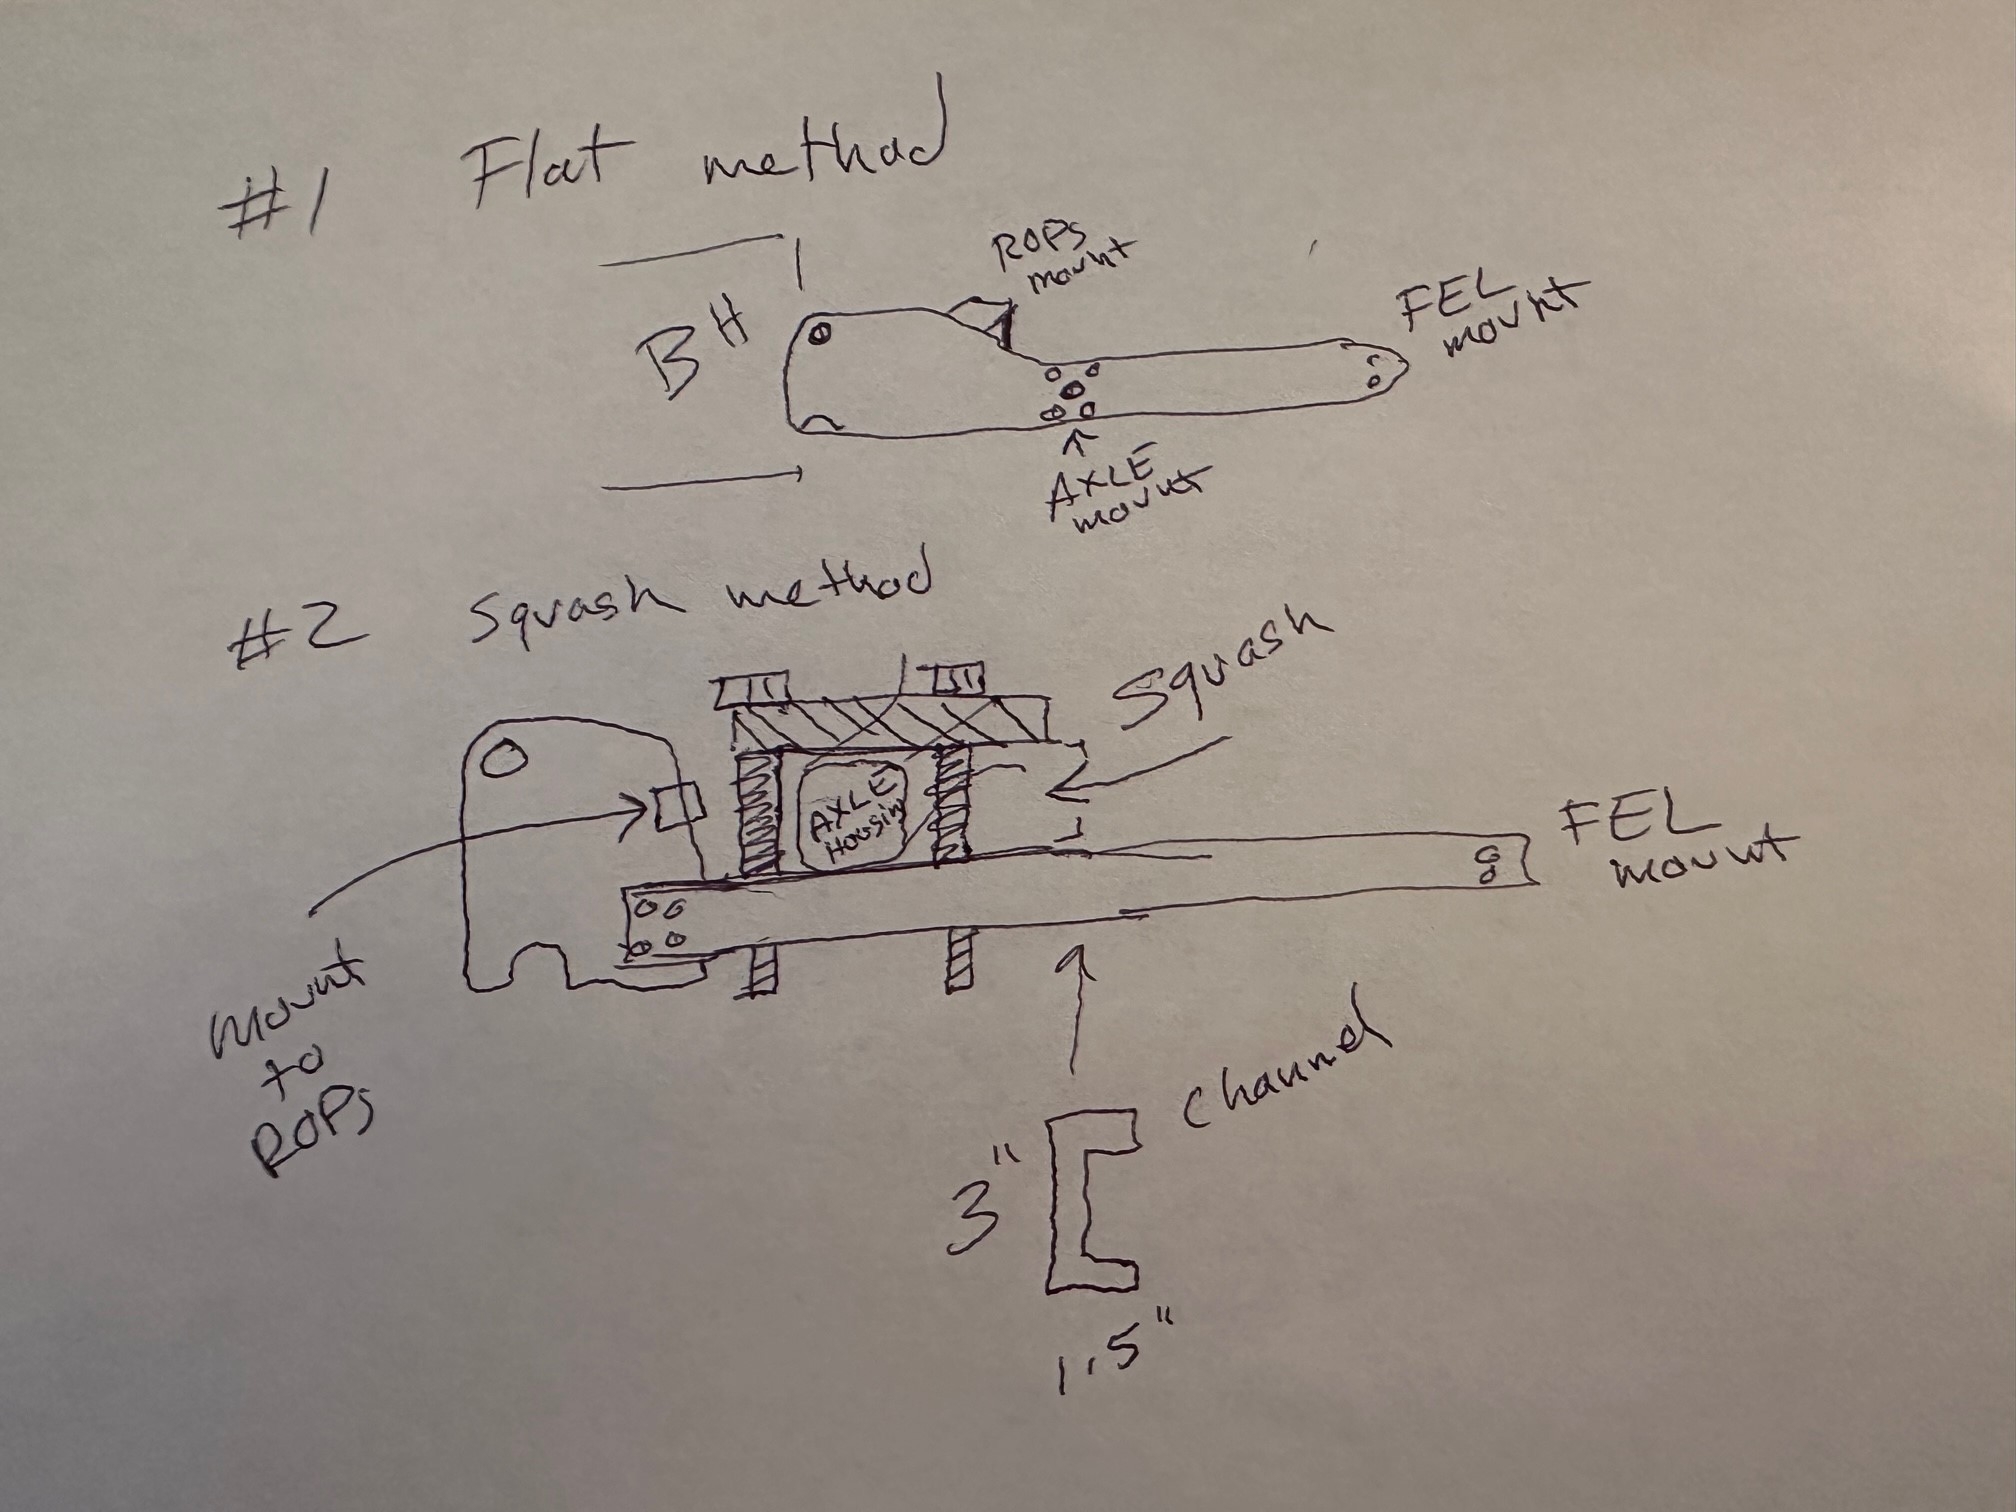 #1 Flat method
ROPS
mount
BH
FEL
mount
AXLE
mount
#2 Squash method
Squash
AXLE
Housing
FEL
mount
mount
to
ROPS
channel
3"
1.5"